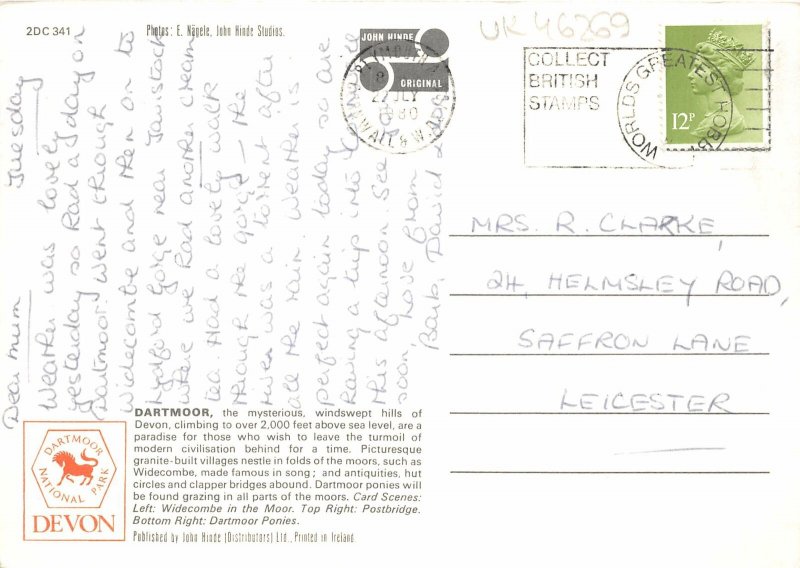 2DC 341
Photos: E. Nägele, John Hinde Studios.
JOHN HINDE
ORIGINAL
UK 46269
COLLECT
BRITISH
STAMPS
WORLDS GREATEST HOBBY
12P
PLYMOUTH
27 JLY
1980
CORNWALL & W.D.
Dear Mum Tuesday
Weather was lovely
yesterday so had a day on
Dartmoor. Went through
Widecombe and then on to
Lydford Gorge near Tavistock
where we had another cream
tea. Had a lovely walk
through the gorge - the
river was a torrent after
all the rain. Weather is
perfect again today so are
having a trip into Cornwall
this afternoon. See you
soon, Love from
Barb, David
MRS. R. CLARKE,
24, HELMSLEY ROAD,
SAFFRON LANE
LEICESTER
DARTMOOR
NATIONAL PARK
DEVON
DARTMOOR, the mysterious, windswept hills of
Devon, climbing to over 2,000 feet above sea level, are a
paradise for those who wish to leave the turmoil of
modern civilisation behind for a time. Picturesque
granite-built villages nestle in folds of the moors, such as
Widecombe, made famous in song; and antiquities, hut
circles and clapper bridges abound. Dartmoor ponies will
be found grazing in all parts of the moors. Card Scenes:
Left: Widecombe in the Moor. Top Right: Postbridge.
Bottom Right: Dartmoor Ponies.
Published by John Hinde (Distributors) Ltd., Printed in Ireland